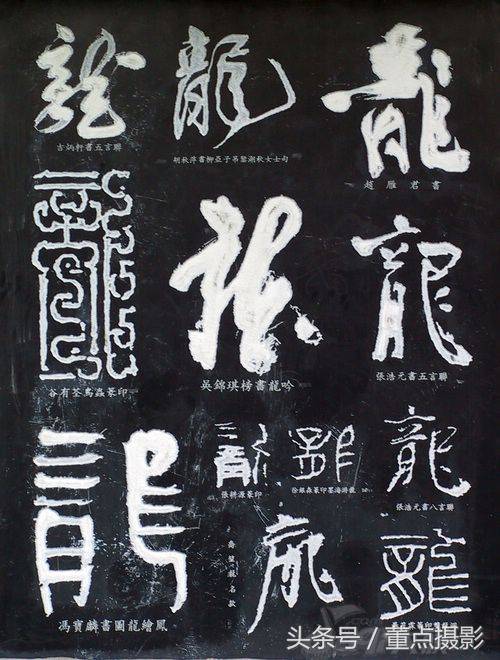 龍 龍 龍
吉炳軒書五言聯
胡秋萍書柳亞子吊鑒湖秋女士句
趙雁君書
龍 龍 龍
谷有荃鳥蟲篆印
吳錦琪榜書龍吟
張浩元書五言聯
龍 龍 龍
張耕源篆印
張浩元書八言聯
龍 龍 龍
馮寶麟書圖龍繪鳳
头条号 / 重点摄影